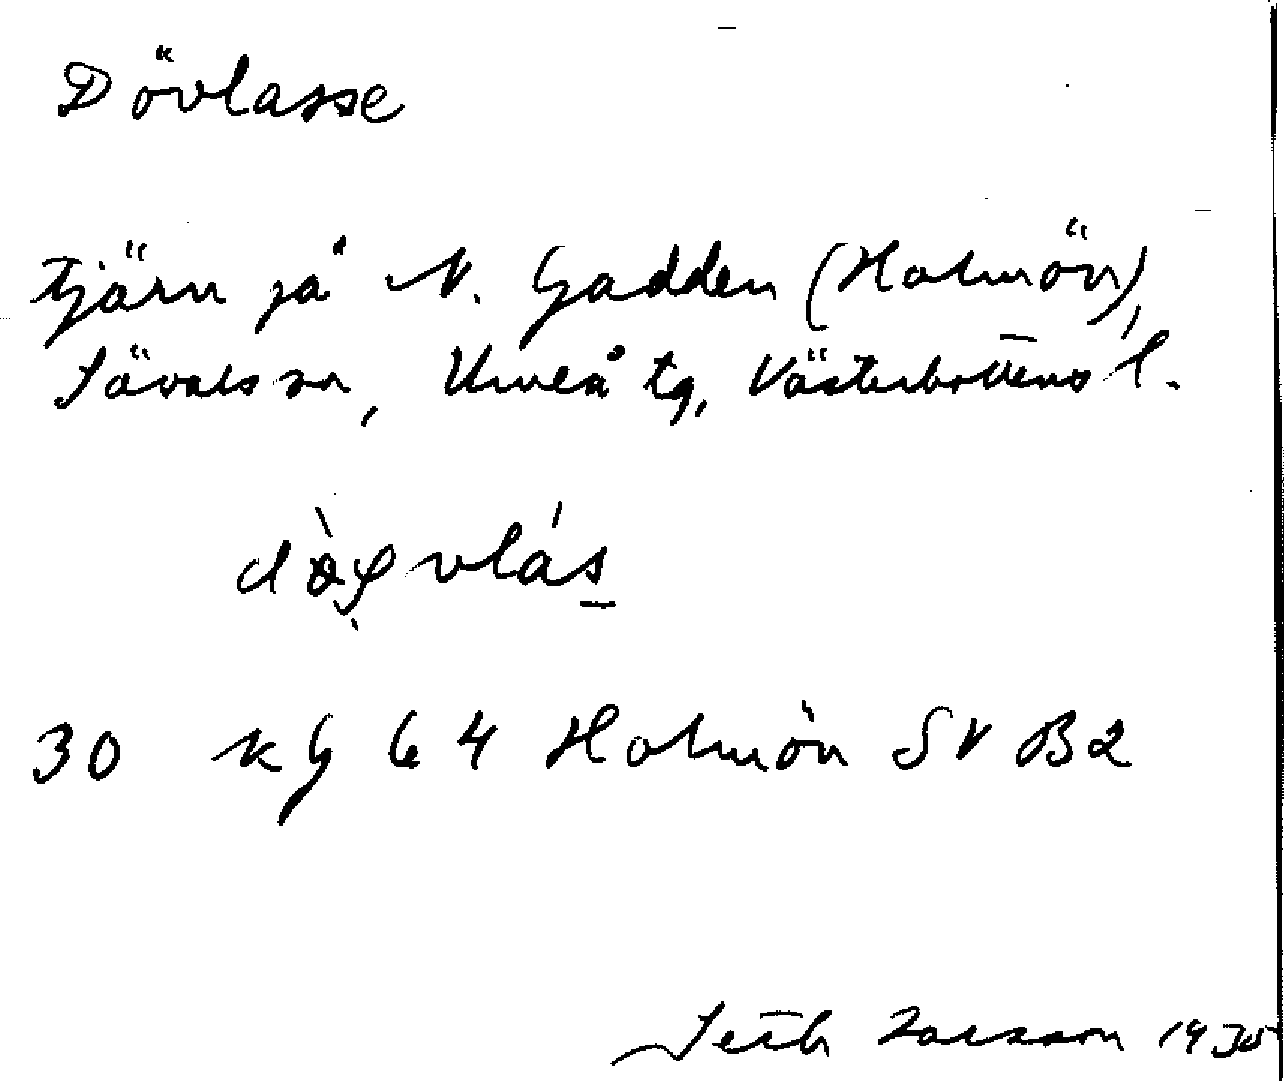 Dövlasse
tjärn på N. Gadden (Holmön),
Sävars sn, Umeå tg, Västerbottens l.
30 KG 64 Holmön SV B2
Seth Larsson 19